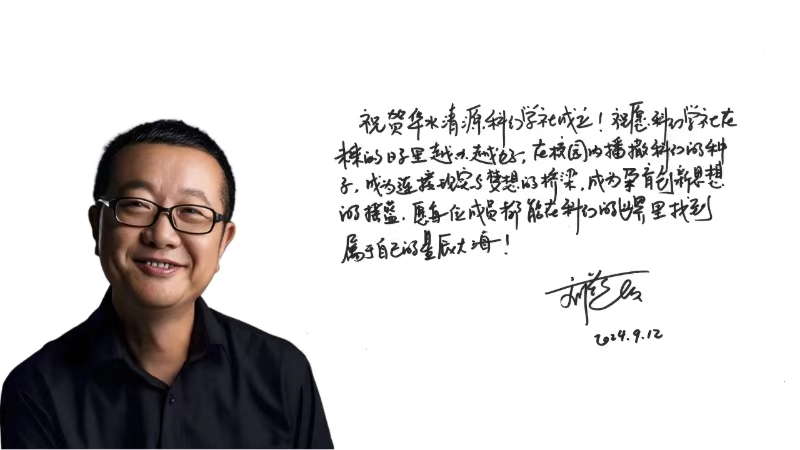 祝贺华水清源科幻学社成立！祝愿科幻学社在
未来的日子里越办越好，在校园内播撒科幻的种
子，成为连接现实与梦想的桥梁，成为孕育创新思想
的摇篮。愿每位成员都能在科幻的世界里找到
属于自己的星辰大海！
刘慈欣
2024.9.12